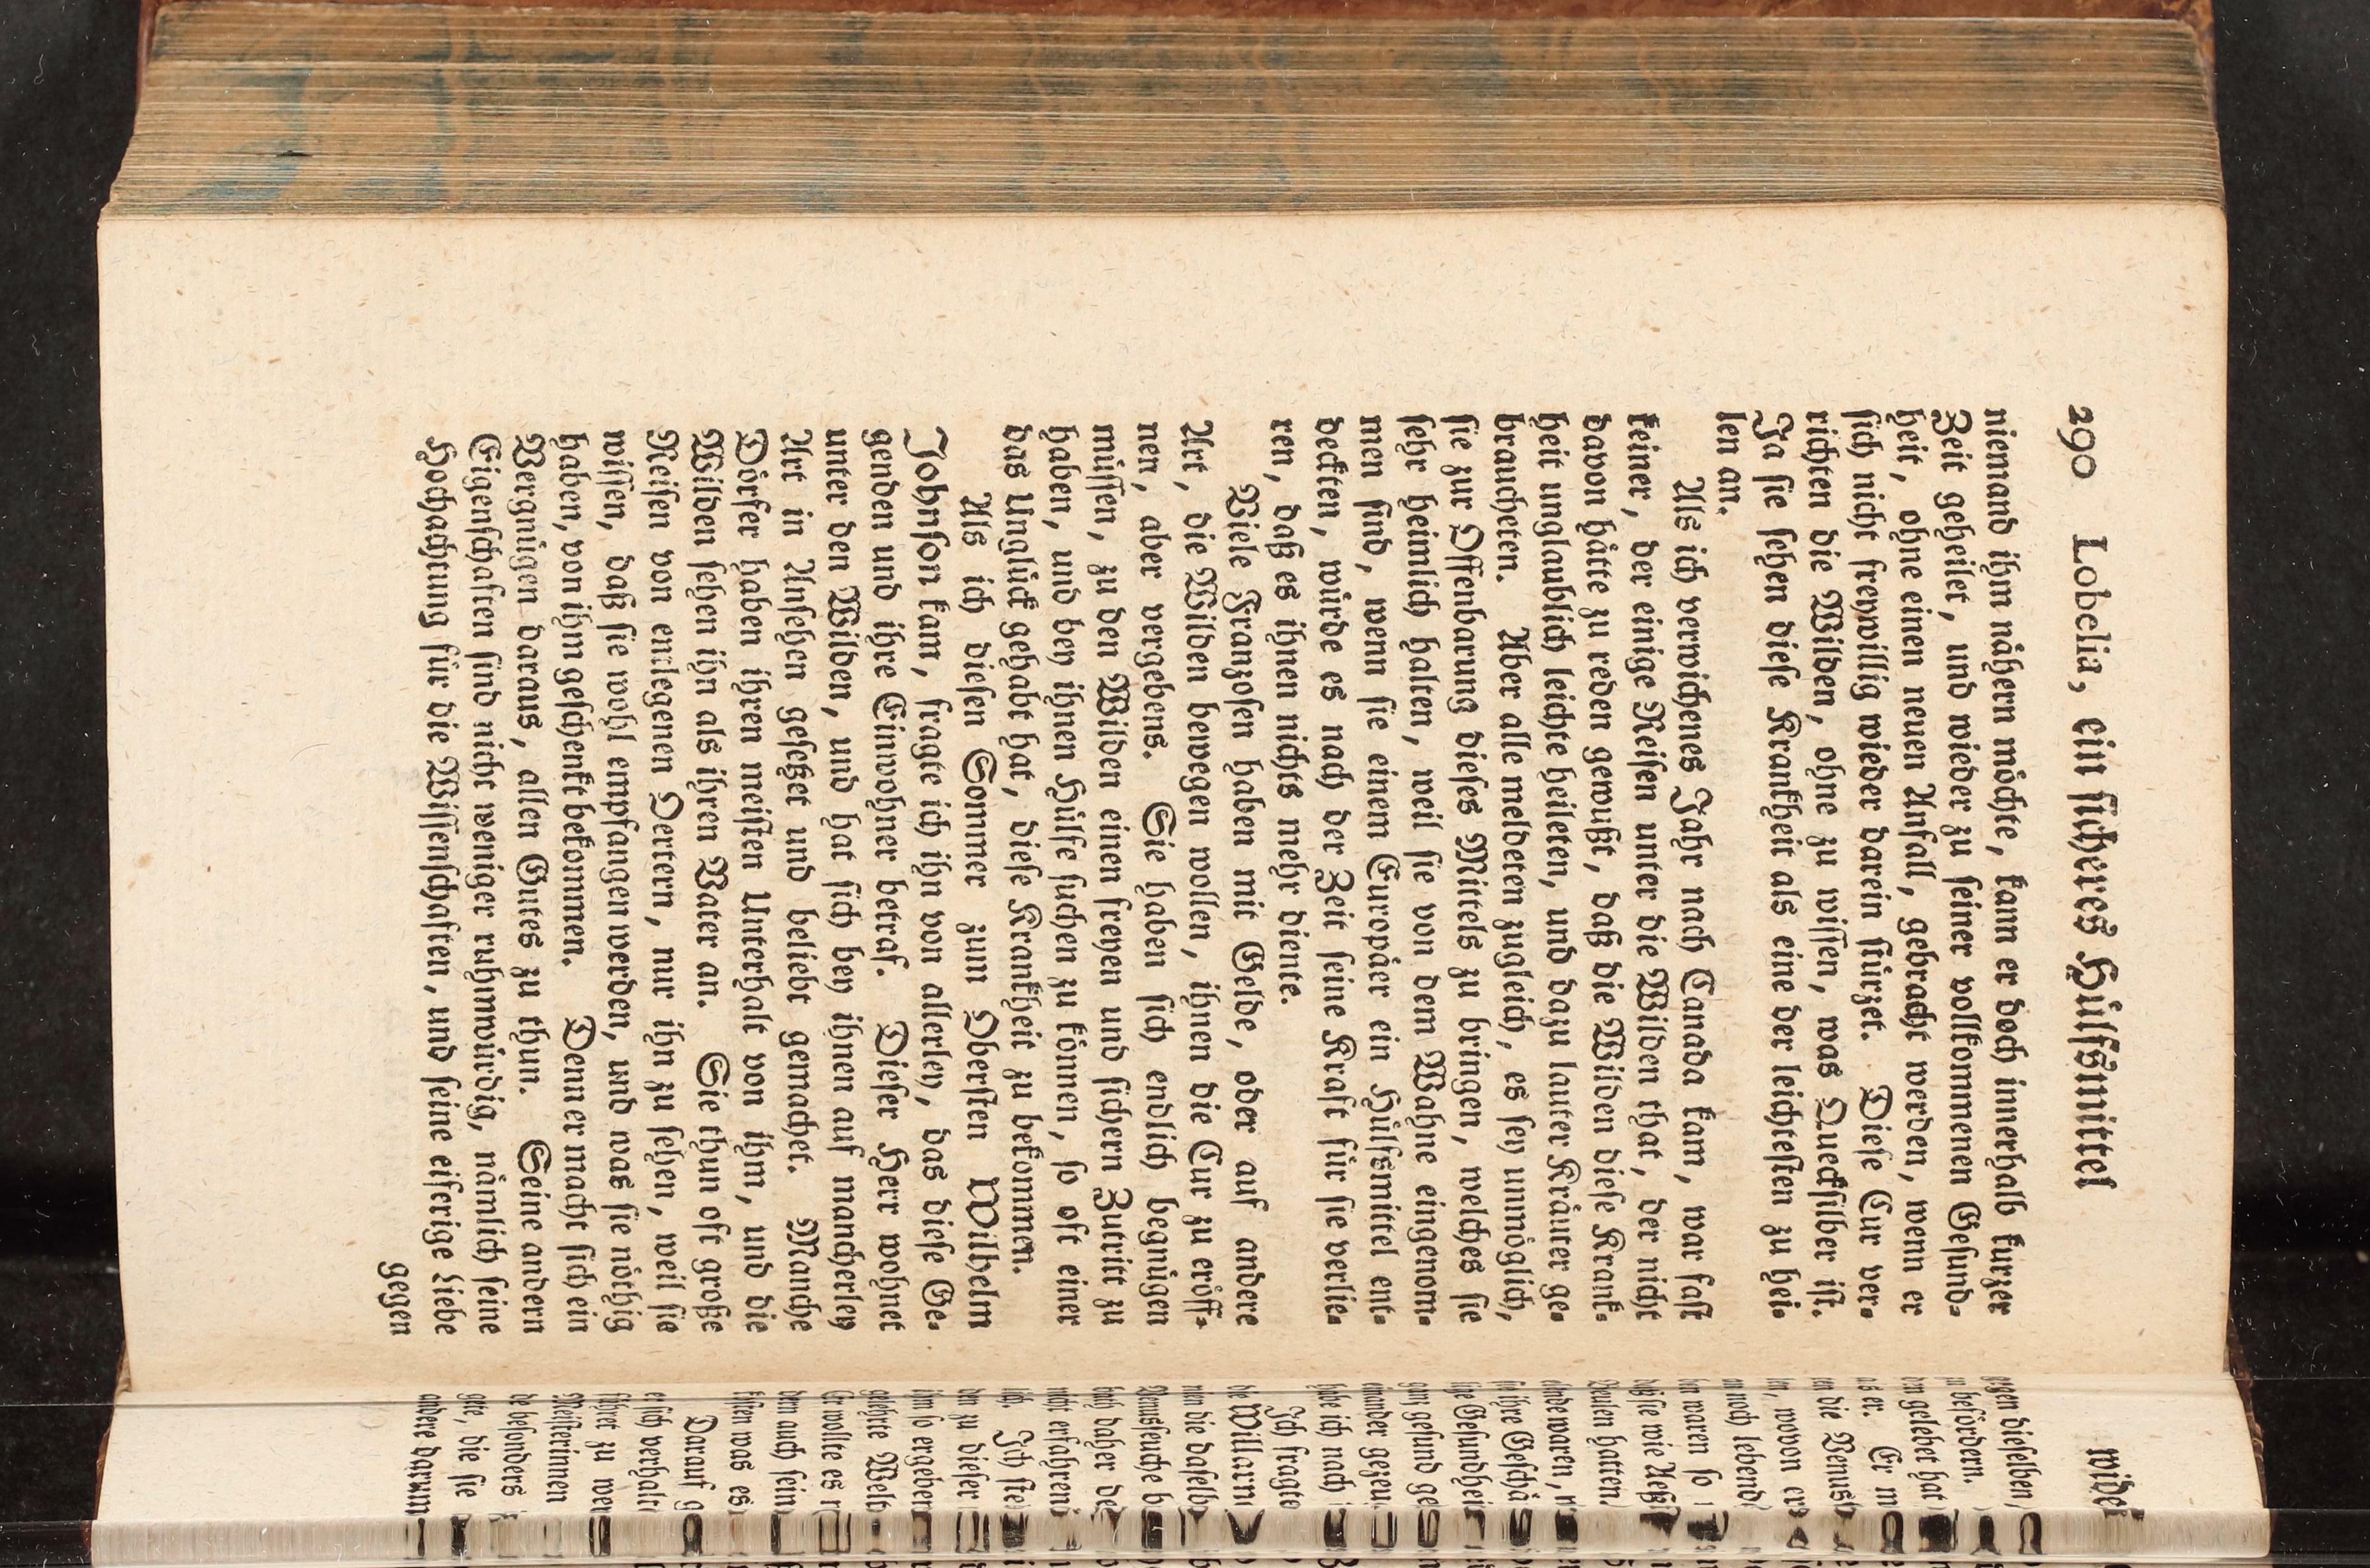 290 Lobelia, ein sicheres Hülfsmittel
niemand ihm nähern möchte, kann er doch innerhalb kurzer
Zeit geheilet, und wieder zu seiner vollkommenen Gesund-
heit, ohne einen neuen Anfall, gebracht werden, wenn er
sich nicht freywillig wieder darein stürzet. Diese Cur ver-
richten die Wilden, ohne zu wissen, was Quecksilber ist.
Ja sie sehen diese Krankheit als eine der leichtesten zu hei-
len an.
Als ich verwichenes Jahr nach Canada kam, war fast
keiner, der einige Reisen unter die Wilden that, der nicht
davon hätte zu reden gewußt, daß die Wilden diese Krank-
heit unglaublich leichte heileten, und dazu lauter Kräuter ge-
braucheten. Aber alle meldeten zugleich, es sey unmöglich,
sie zur Offenbarung dieses Mittels zu bringen, welches sie
sehr heimlich halten, weil sie von dem Wahne eingenom-
men sind, wenn sie einem Europäer ein Hülfsmittel ent-
deckten, würde es nach der Zeit seine Kraft für sie verlie-
ren, daß es ihnen nichts mehr diente.
Viele Franzosen haben mit Gelde, oder auf andere
Art, die Wilden bewegen wollen, ihnen die Cur zu eröff-
nen, aber vergebens. Sie haben sich endlich begnügen
müssen, zu den Wilden einen freyen und sichern Zutritt zu
haben, und bey ihnen Hülfe suchen zu können, so oft einer
das Unglück gehabt hat, diese Krankheit zu bekommen.
Als ich diesen Sommer zum Obersten Wilhelm
Johnson kam, fragte ich ihn von allerley, das diese Ge-
genden und ihre Einwohner betraf. Dieser Herr wohnet
unter den Wilden, und hat sich bey ihnen auf mancherley
Art in Ansehen gesetzet und beliebt gemachet. Manche
Dörfer haben ihren meisten Unterhalt von ihm, und die
Wilden sehen ihn als ihren Vater an. Sie thun oft große
Reisen von entlegenen Oertern, nur ihn zu sehen, weil sie
wissen, daß sie wohl empfangen werden, und was sie nöthig
haben, von ihm geschenkt bekommen. Denn er macht sich ein
Vergnügen daraus, allen Gutes zu thun. Seine andern
Eigenschaften sind nicht weniger ruhmwürdig, nämlich seine
Hochachtung für die Wissenschaften, und seine eiferige Liebe
gegen
wider
gegen dieselben
befördern.
geleber hat
er. Er
die
wovon
noch lebend
waren so
sie wie
hatten.
waren,
ihre
Gesundheit
gesund
gegen
ich nach
Ich fragte
die daselbst
daher
erfahren
Ich
zu dieser
so ergeben
Welt
wollte es
auch sein
was es
Darauf
sich
zu
Meisterinnen
besonders
die sie
andere darum